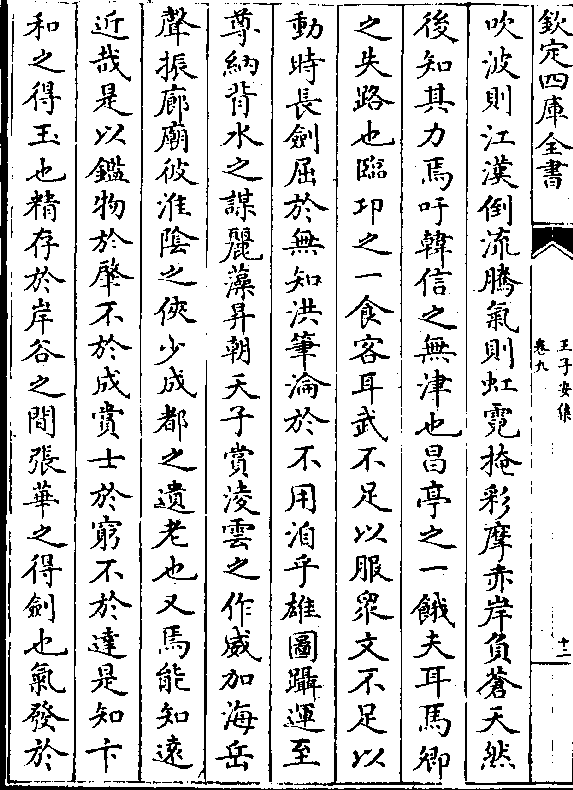 欽定四庫全書
王子安集
卷九
十二
吹波則江漢倒流騰氣則虹霓掩彩摩赤岸負蒼天然
後知其力焉吁韓信之無津也昌亭之一餓夫耳馬卿
之失路也臨邛之一食客耳武不足以服衆文不足以
動時長劍屈於無知洪筆淪於不用洎乎雄圖躡運至
尊納背水之謀麗藻昇朝天子賞凌雲之作威加海岳
聲振廊廟彼淮陰之俠少成都之遺老也又焉能知遠
近哉是以鑑物於肇不於成賞士於窮不於達是知卞
和之得玉也精存於岸谷之間張華之得劍也氣發於